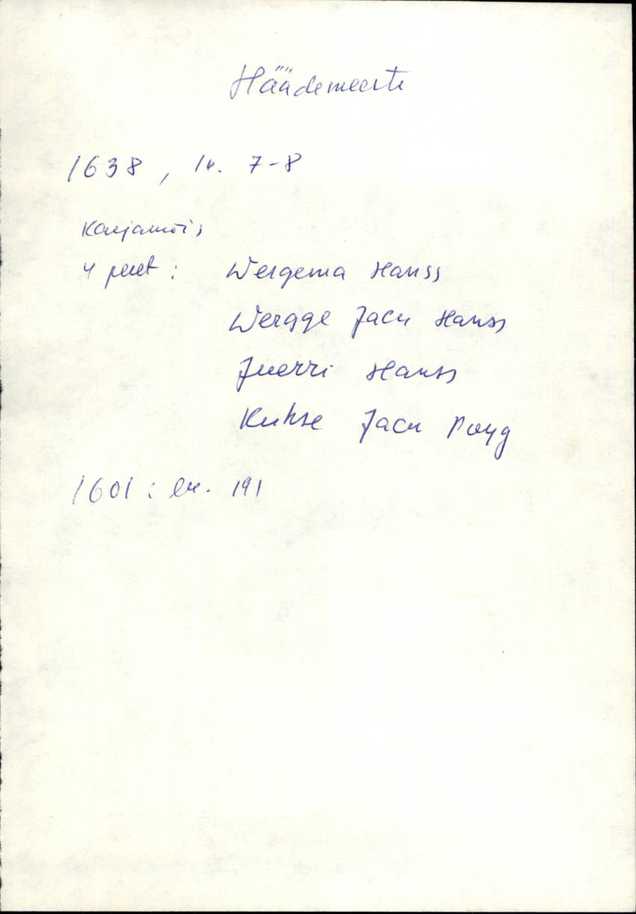 Häädemeeste
1638, lk. 7-8
Karjamõis
4 peret: Wergema Hanss
Wergge Jacu Hanss
Juerri Hanss
Kuhse Jacu Poyg
1601: lk. 191